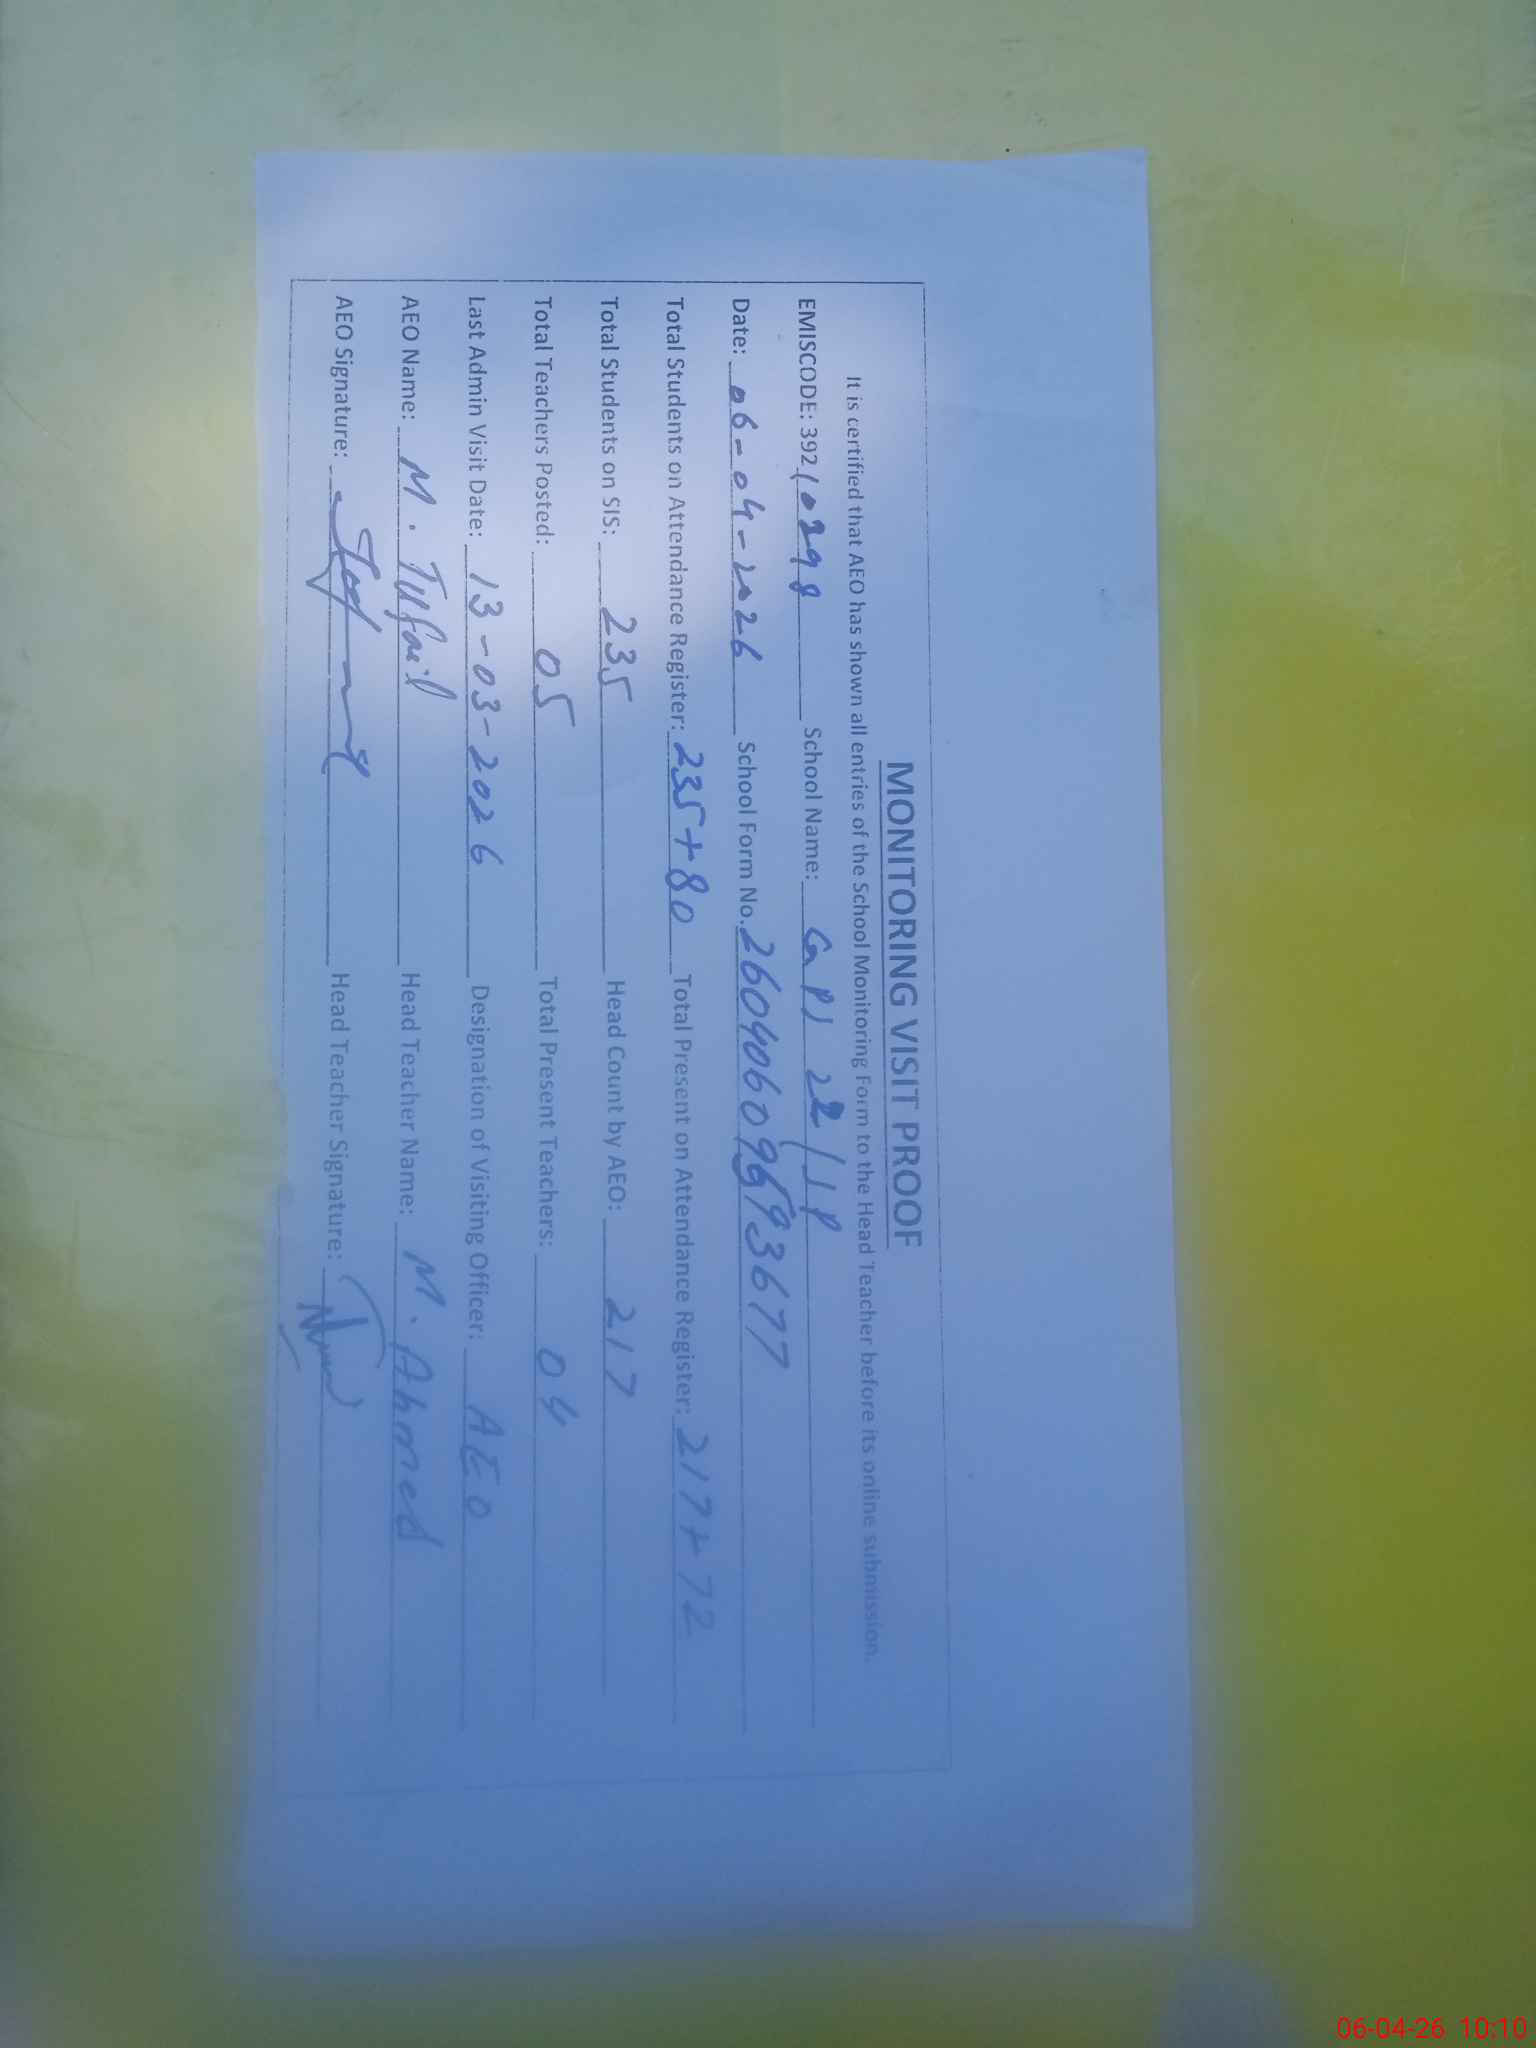 MONITORING VISIT PROOF
It is certified that AEO has shown all entries of the School Monitoring Form to the Head Teacher before its online submission.
EMISCODE: 39210298 School Name: GPS 22/1P
Date: 06-04-2026 School Form No. 26040609593677
Total Students on Attendance Register: 235+80 Total Present on Attendance Register: 217+72
Total Students on SIS: 235 Head Count by AEO: 217
Total Teachers Posted: 05 Total Present Teachers: 04
Last Admin Visit Date: 13-03-2026 Designation of Visiting Officer: AEO
AEO Name: M. Tufail Head Teacher Name: M. Ahmed
AEO Signature: Head Teacher Signature:
06-04-26 10:10